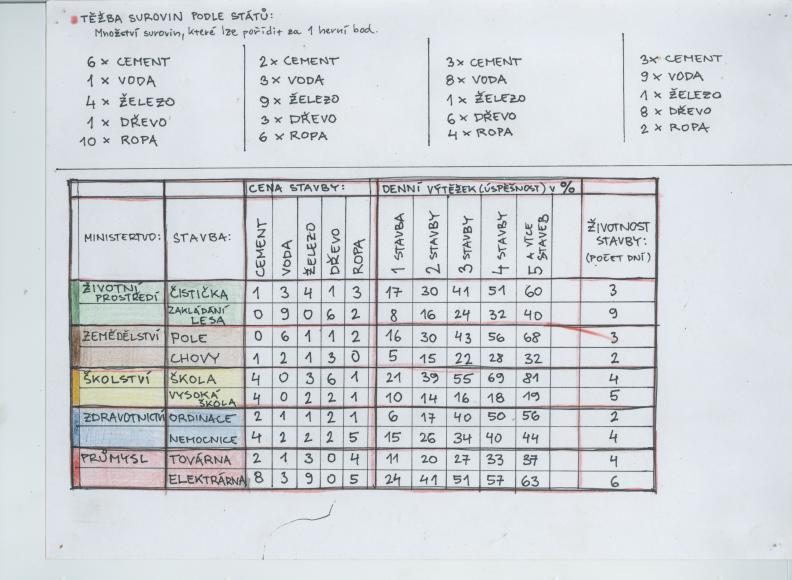 TĚŽBA SUROVIN PODLE STÁTŮ:
Množství surovin, které lze pořídit za 1 herní bod.
6 × CEMENT
1 × VODA
4 × ŽELEZO
1 × DŘEVO
10 × ROPA
2 × CEMENT
3 × VODA
9 × ŽELEZO
3 × DŘEVO
6 × ROPA
3 × CEMENT
8 × VODA
1 × ŽELEZO
6 × DŘEVO
4 × ROPA
3 × CEMENT
9 × VODA
1 × ŽELEZO
8 × DŘEVO
2 × ROPA
CENA STAVBY: DENNÍ VÝTĚŽEK (ÚSPĚŠNOST) V %
MINISTERTVO: STAVBA: CEMENT VODA ŽELEZO DŘEVO ROPA 1 STAVBA 2 STAVBY 3 STAVBY 4 STAVBY 5 A VÍCE STAVEB ŽIVOTNOST STAVBY: (POČET DNÍ)
ŽIVOTNÍ PROSTŘEDÍ ČISTIČKA 1 3 4 1 3 17 30 41 51 60 3
ZAKLÁDÁNÍ LESA 0 9 0 6 2 8 16 24 32 40 9
ZEMĚDĚLSTVÍ POLE 0 6 1 1 2 16 30 43 56 68 3
CHOVY 1 2 1 3 0 5 15 22 28 32 2
ŠKOLSTVÍ ŠKOLA 4 0 3 6 1 21 39 55 69 81 4
VYSOKÁ ŠKOLA 4 0 2 2 1 10 14 16 18 19 5
ZDRAVOTNICTVÍ ORDINACE 2 1 1 2 1 6 17 40 50 56 2
NEMOCNICE 4 2 2 2 5 15 26 34 40 44 4
PRŮMYSL TOVÁRNA 2 1 3 0 4 11 20 27 33 37 4
ELEKTRÁRNA 8 3 9 0 5 24 41 51 57 63 6